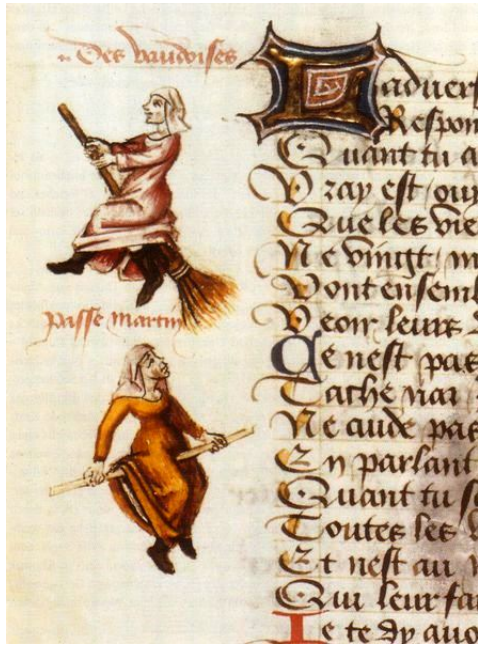 Des vaudoises
passe martin
Laduers
Respon
Quant tu a
Vray est / ouy
Que les vie
Ne vingt / m
Vont ensembl
Veoir leurs
Ce nest pas
Tache nai
Ne cuide pas
En parlant
Quant tu s
Toutes les
Et nest au
Qui leur fai
Je te dy auo